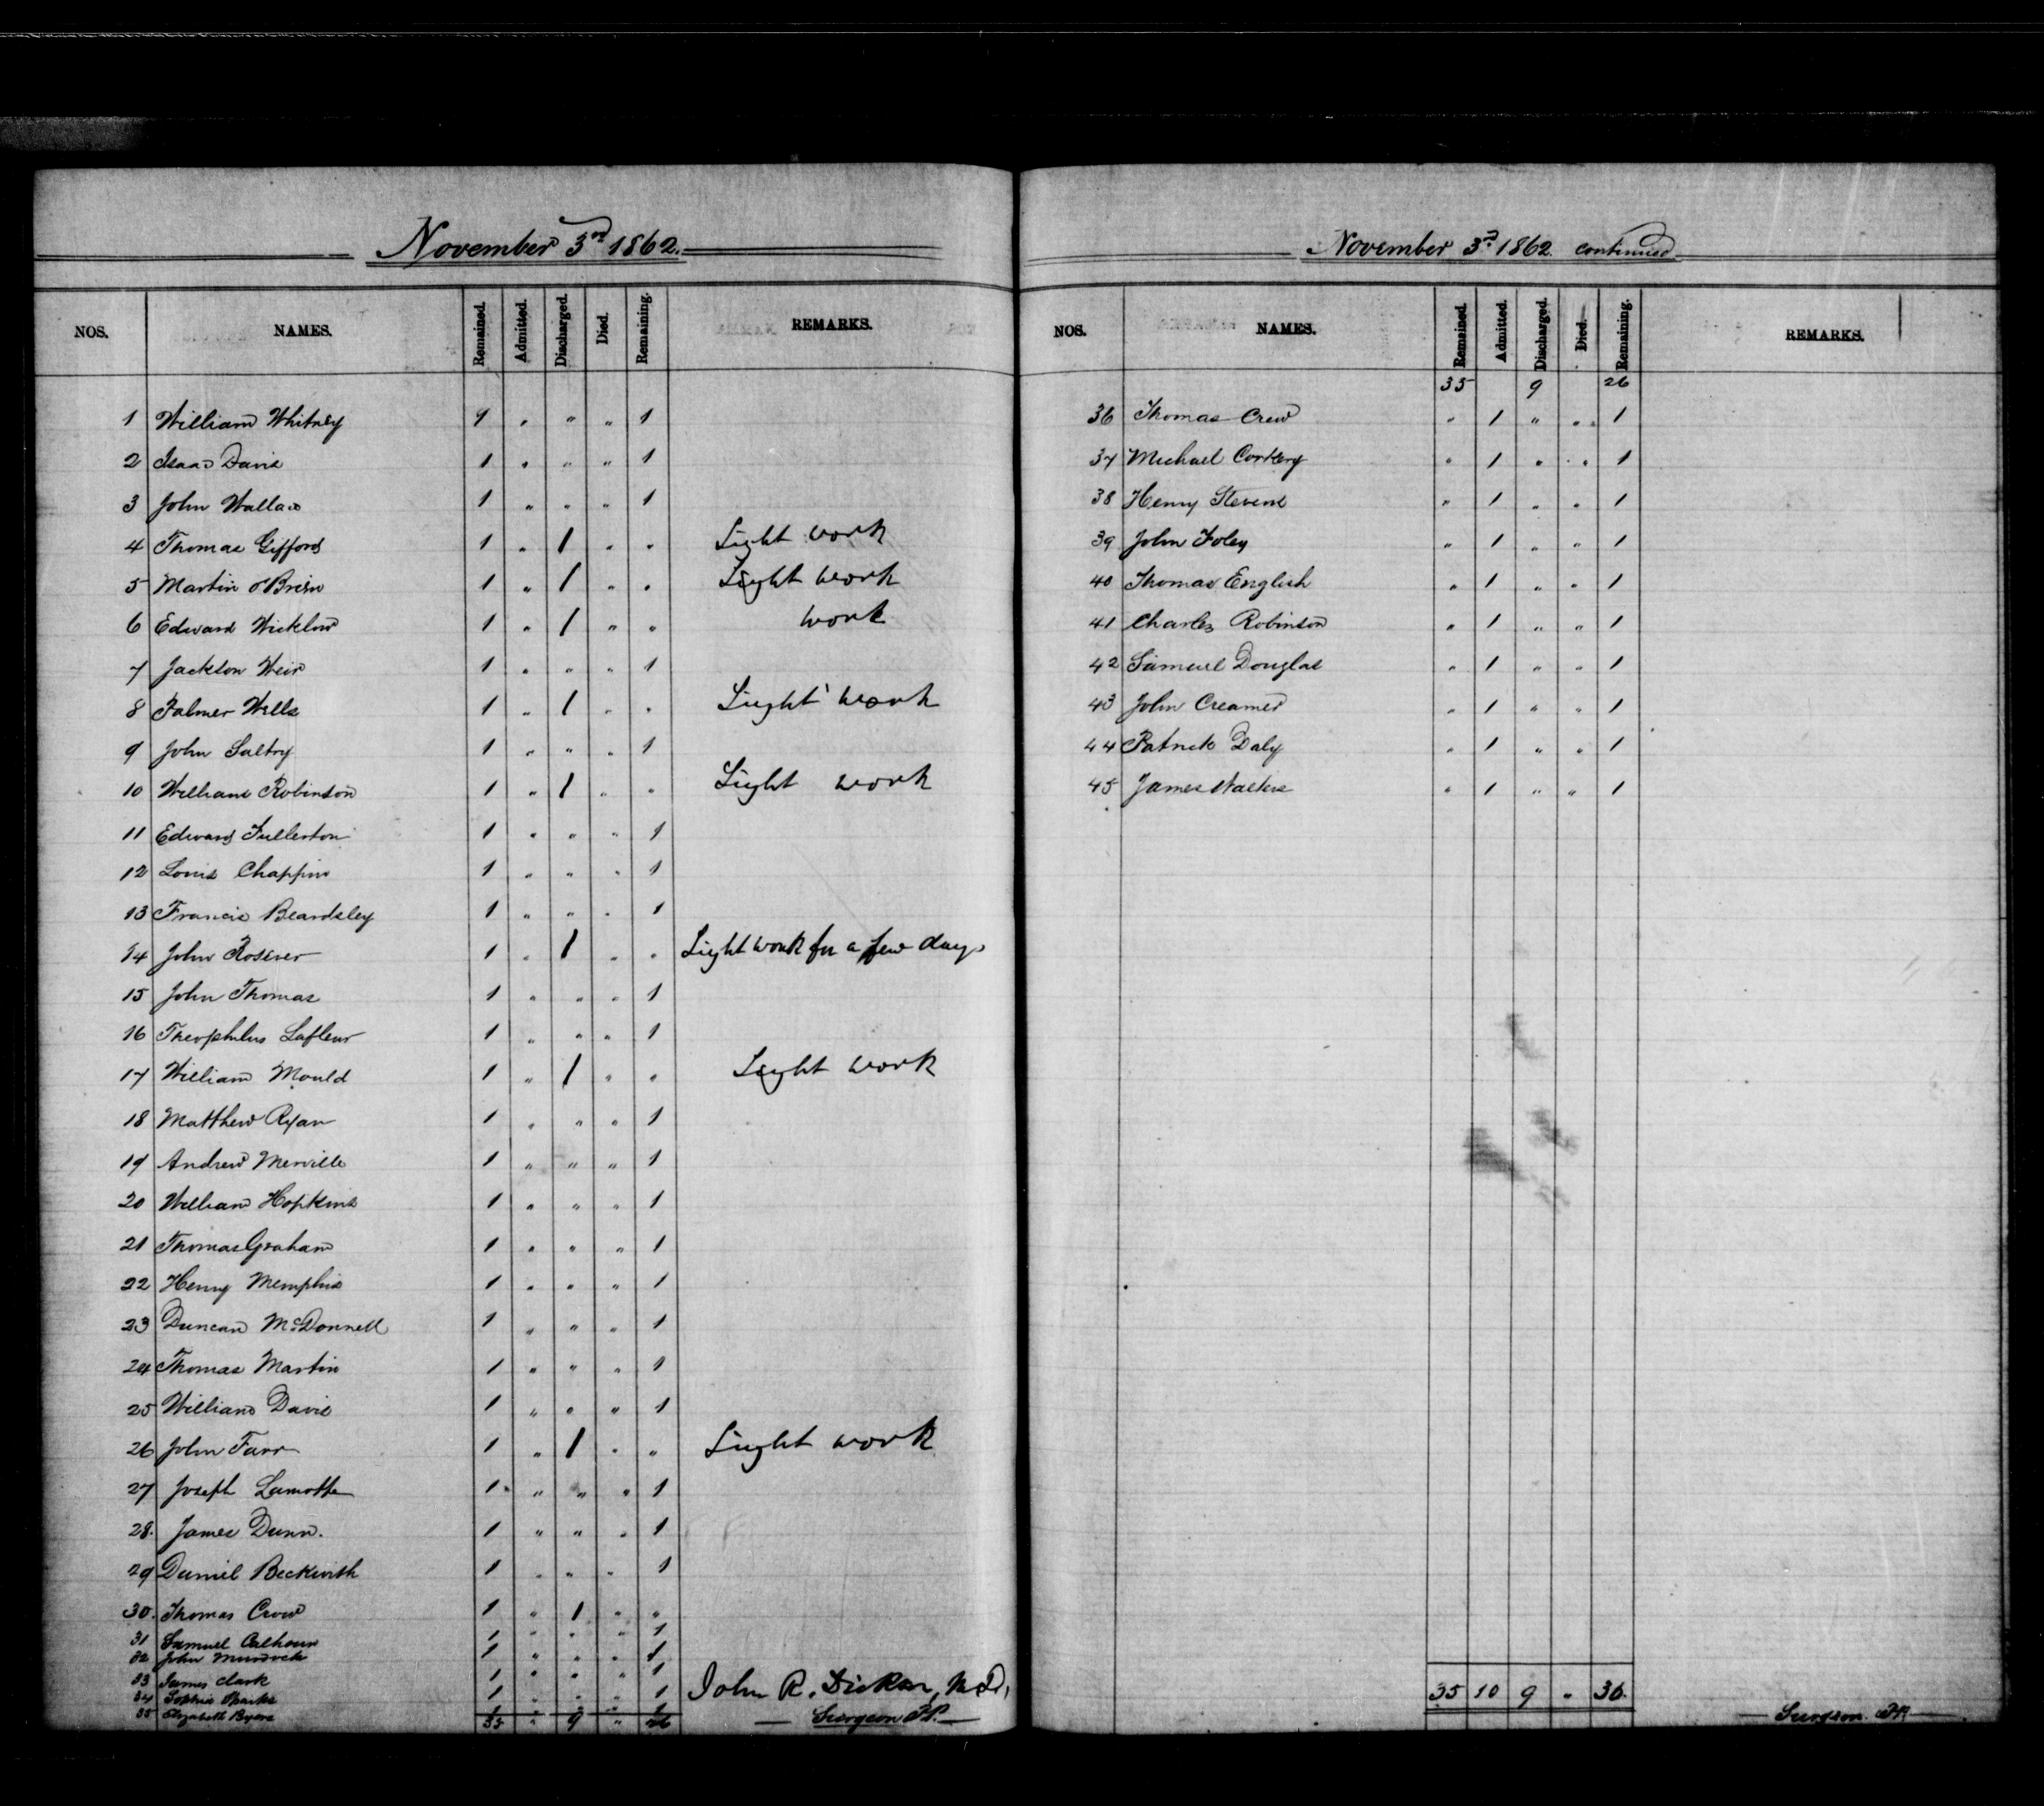 November 3rd 1862.
NOS. NAMES. Remained. Admitted. Discharged. Died. Remaining. REMARKS.
1 William Whitney 1 " " " 1
2 Isaac Davis 1 " " " 1
3 John Wallace 1 " " " 1
4 Thomas Gifford 1 " 1 " " Light work
5 Martin O'Brien 1 " 1 " " Light work
6 Edward Wicklow 1 " 1 " " work
7 Jackson Weir 1 " " " 1
8 Palmer Wells 1 " 1 " " Light work
9 John Saltry 1 " " " 1
10 William Robinson 1 " 1 " " Light work
11 Edward Fullerton 1 " " " 1
12 Louis Chappin 1 " " " 1
13 Francis Beardsley 1 " " " 1
14 John 1 " 1 " " Light work for a few days
15 John Thomas 1 " " " 1
16 Theophilus Lafleur 1 " " " 1
17 William Mould 1 " 1 " " Light work
18 Matthew Ryan 1 " " " 1
19 Andrew Merville 1 " " " 1
20 William Hopkins 1 " " " 1
21 Thomas Graham 1 " " " 1
22 Henry Memphis 1 " " " 1
23 Duncan McDonnell 1 " " " 1
24 Thomas Martin 1 " " " 1
25 William Davis 1 " " " 1
26 John Farr 1 " 1 " " Light work
27 Joseph Lamothe 1 " " " 1
28. James Dunn. 1 " " " 1
29 Daniel Beckwith 1 " " " 1
30. Thomas Crow 1 " 1 " "
31 Samuel Calhoun 1 " " " 1
32 John Murdock 1 " " " 1
33 James Clark 1 " " " 1
34 Sophia Sparks 1 " " " 1
35 Elizabeth Byers 1 " " " 1
35 " 9 " 26
John R. Dickson, M.D.,
Surgeon P.P.
November 3rd 1862. continued
NOS. NAMES. Remained. Admitted. Discharged. Died. Remaining. REMARKS.
35 9 26
36 Thomas Crew " 1 " " 1
37 Michael Corkery " 1 " " 1
38 Henry Stevens " 1 " " 1
39 John Foley " 1 " " 1
40 Thomas English " 1 " " 1
41 Charles Robinson " 1 " " 1
42 Samuel Douglas " 1 " " 1
43 John Creamer " 1 " " 1
44 Patrick Daly " 1 " " 1
45 James Walters " 1 " " 1
35 10 9 " 36.
Surgeon P.P.